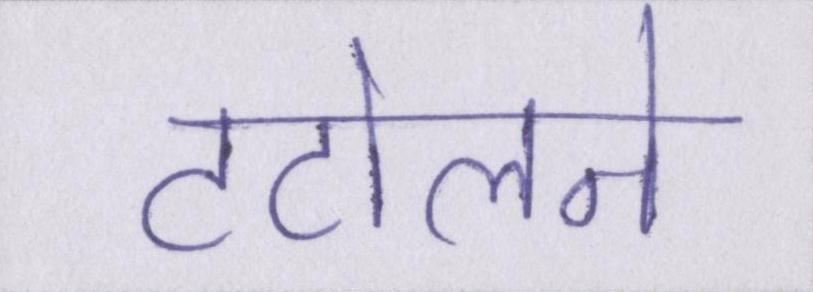 टटोलने